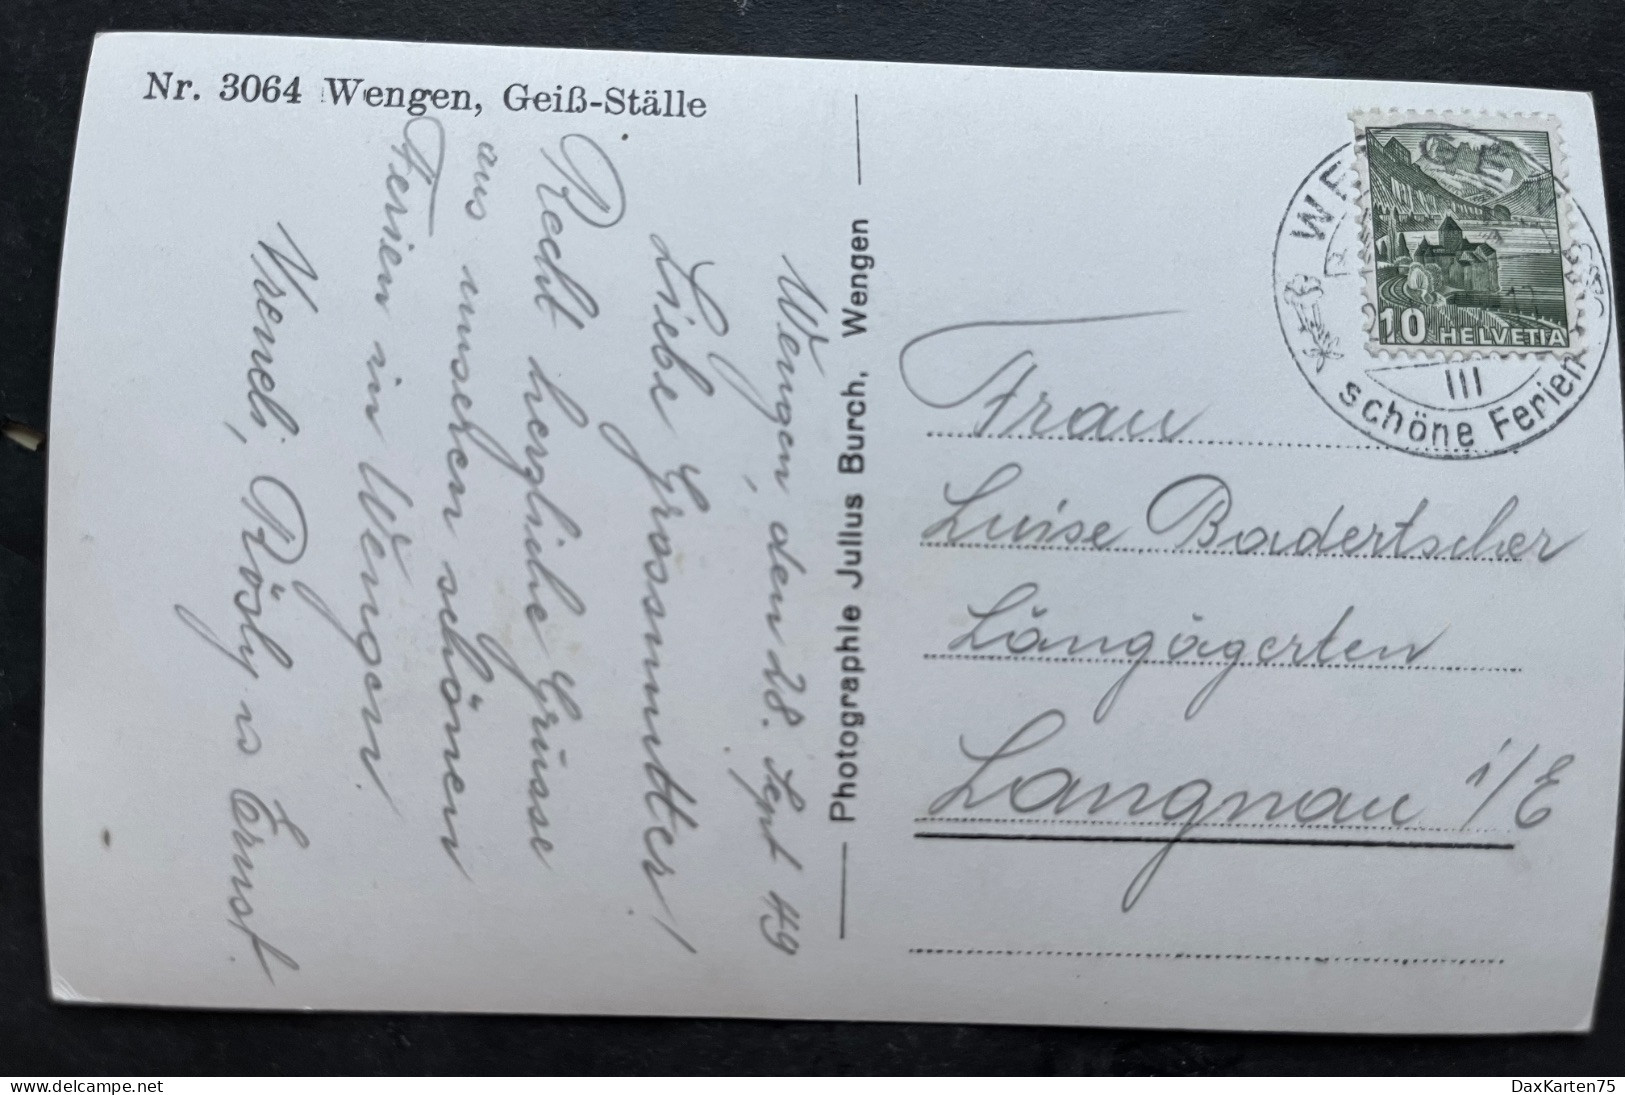 Nr. 3064 Wengen, Geiß-Ställe
Wengen, den 28. Sept 49
Liebe Grossmutter!
Recht herzliche Grüsse
aus unseren schönen
Ferien in Wengen.
Vreneli, Rösly u Ernst.
Photographie Julius Burch, Wengen
10 HELVETIA
III
schöne Ferien
Frau
Luise Badertscher
Längägerten
Langnau i/E
delcampe.net
DaxKarten75